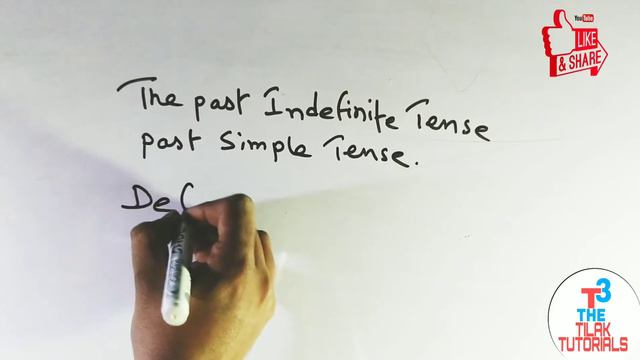 YouTube
LIKE
& SHARE
The past Indefinite Tense
past Simple Tense.
De
T3
THE
TILAK
TUTORIALS